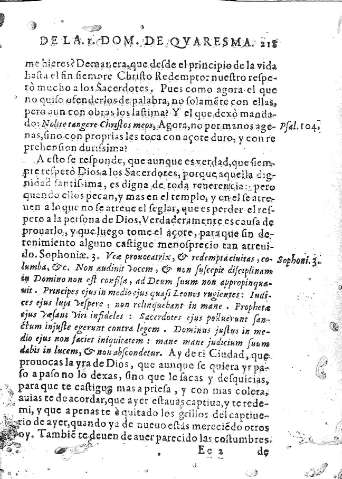 DE LA 1. DOM. DE QVARESMA. 218
me hieres? De manera, que desde el principio de la vida
hasta el fin siempre Christo Redemptor nuestro respe-
tò mucho a los Sacerdotes. Pues como agora el que
no quiso ofenderlos de palabra, no solamẽte con ellas,
pero aun con obras los lastima? Y el que dexò manda-
do: Nolite tangere Christos meos, Agora, no por manos age- Psal. 104.
nas, sino con proprias les toca con açote duro, y con re
prehension durissima?
A esto se responde, que aunque es verdad, que siem-
pre respetò Dios a los Sacerdotes, porque aquella dig-
nidad santissima, es digna de toda reuerencia: pero
quando ellos pecan, y mas en el templo, y en el se atre-
uen a lo que no se atreue el seglar, que es perder el res-
peto a la persona de Dios, Verdaderamente es causa de
prouarlo, y que luego tome el açote, para que sin de-
tenimiento alguno castigue menosprecio tan atreui-
do. Sophoniæ. 3. Væ prouocatrix, & redempta ciuitas, co- Sophoni. 3.
lumba, &c. Non audiuit vocem, & non suscepit disciplinam
in Domino non est confisa, ad Deum suum non appropinqua-
uit. Principes eius in medio eius quasi Leones rugientes: Iudi-
ces eius lupi Vespere, non relinquebant in mane. Prophetæ
eius Væsani Viri infideles: Sacerdotes eius polluerunt san-
ctum iniuste egerunt contra legem. Dominus iustus in me-
dio eius non faciet iniquitatem: mane mane iudicium suum
dabit in lucem, & non abscondetur. Ay de ti Ciudad, que
prouocas la yra de Dios, que aunque se quiera yr pas-
so a paso no lo dexas, sino que le sacas y desquicias,
para que te castigue mas apriesa, y con mas colera,
auias te de acordar, que ayer estauas captiua, y te rede-
mi, y que apenas te è quitado los grillos del captiue-
rio de ayer, quando ya de nueuo estàs mereciẽdo otros
oy. Tambiẽ te deuen de auer parecido las costumbres
Ee 2 de